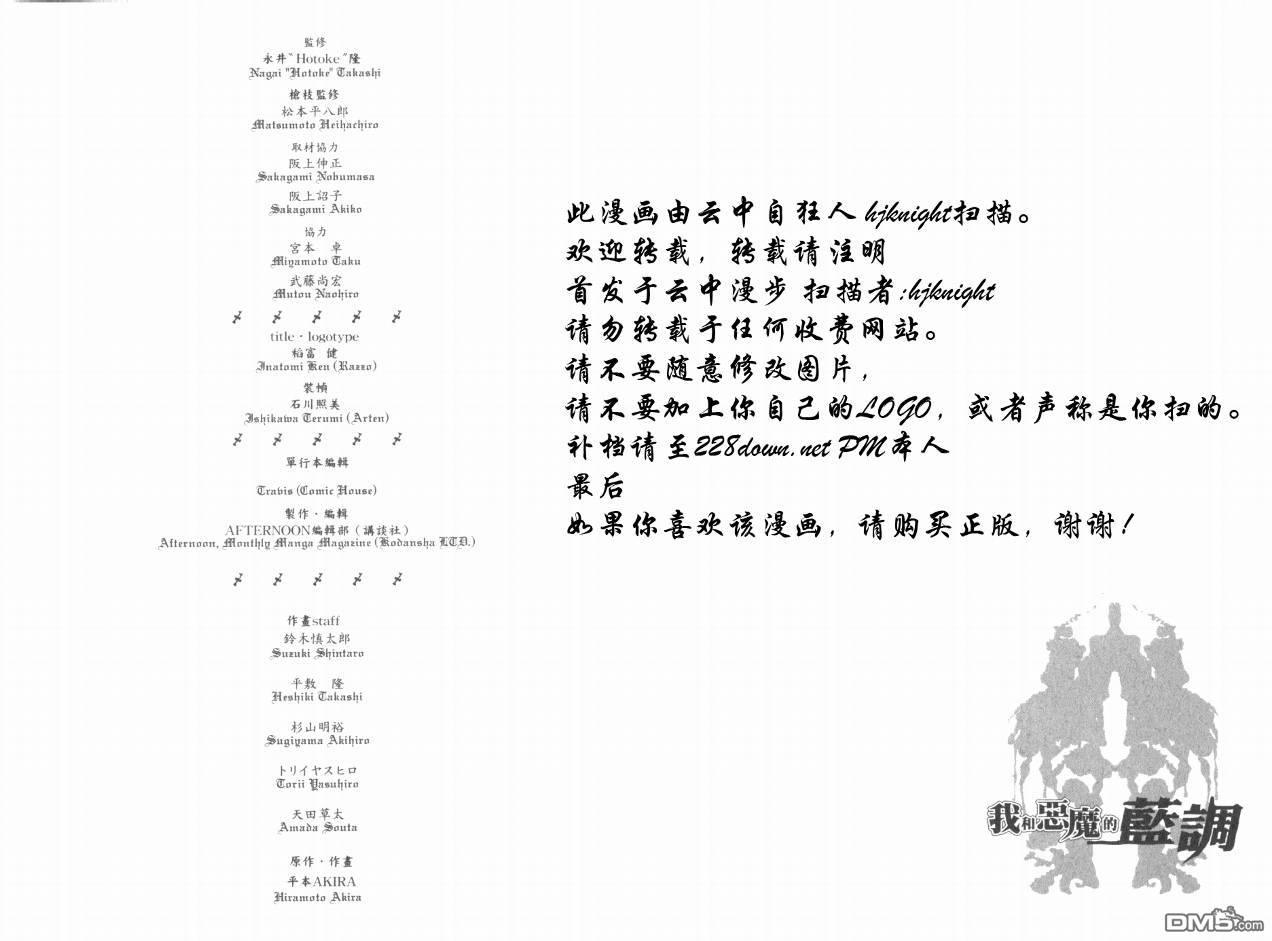 監修
永井"Hotoke"隆
Nagai "Hotoke" Takashi
槍枝監修
松本平八郎
Matsumoto Heihachiro
取材協力
阪上伸正
Sakagami Nobumasa
阪上詔子
Sakagami Akiko
協力
宮本 卓
Miyamoto Taku
武藤尚宏
Mutou Naohiro
title・logotype
稻富 健
Inatomi Ken (Razzo)
裝幀
石川照美
Ishikawa Terumi (Arten)
單行本編輯
Travis (Comic House)
製作・編輯
AFTERNOON編輯部（講談社）
Afternoon, Monthly Manga Magazine (Kodansha LTD.)
作畫staff
鈴木慎太郎
Suzuki Shintaro
平敷 隆
Heshiki Takashi
杉山明裕
Sugiyama Akihiro
トリイヤスヒロ
Torii Yasuhiro
天田草太
Amada Souta
原作・作畫
平本AKIRA
Hiramoto Akira
此漫画由云中自狂人hjknight扫描。
欢迎转载，转载请注明
首发于云中漫步 扫描者:hjknight
请勿转载于任何收费网站。
请不要随意修改图片，
请不要加上你自己的LOGO，或者声称是你扫的。
补档请至228down.net PM本人
最后
如果你喜欢该漫画，请购买正版，谢谢！
我和惡魔的藍調
DM5.com